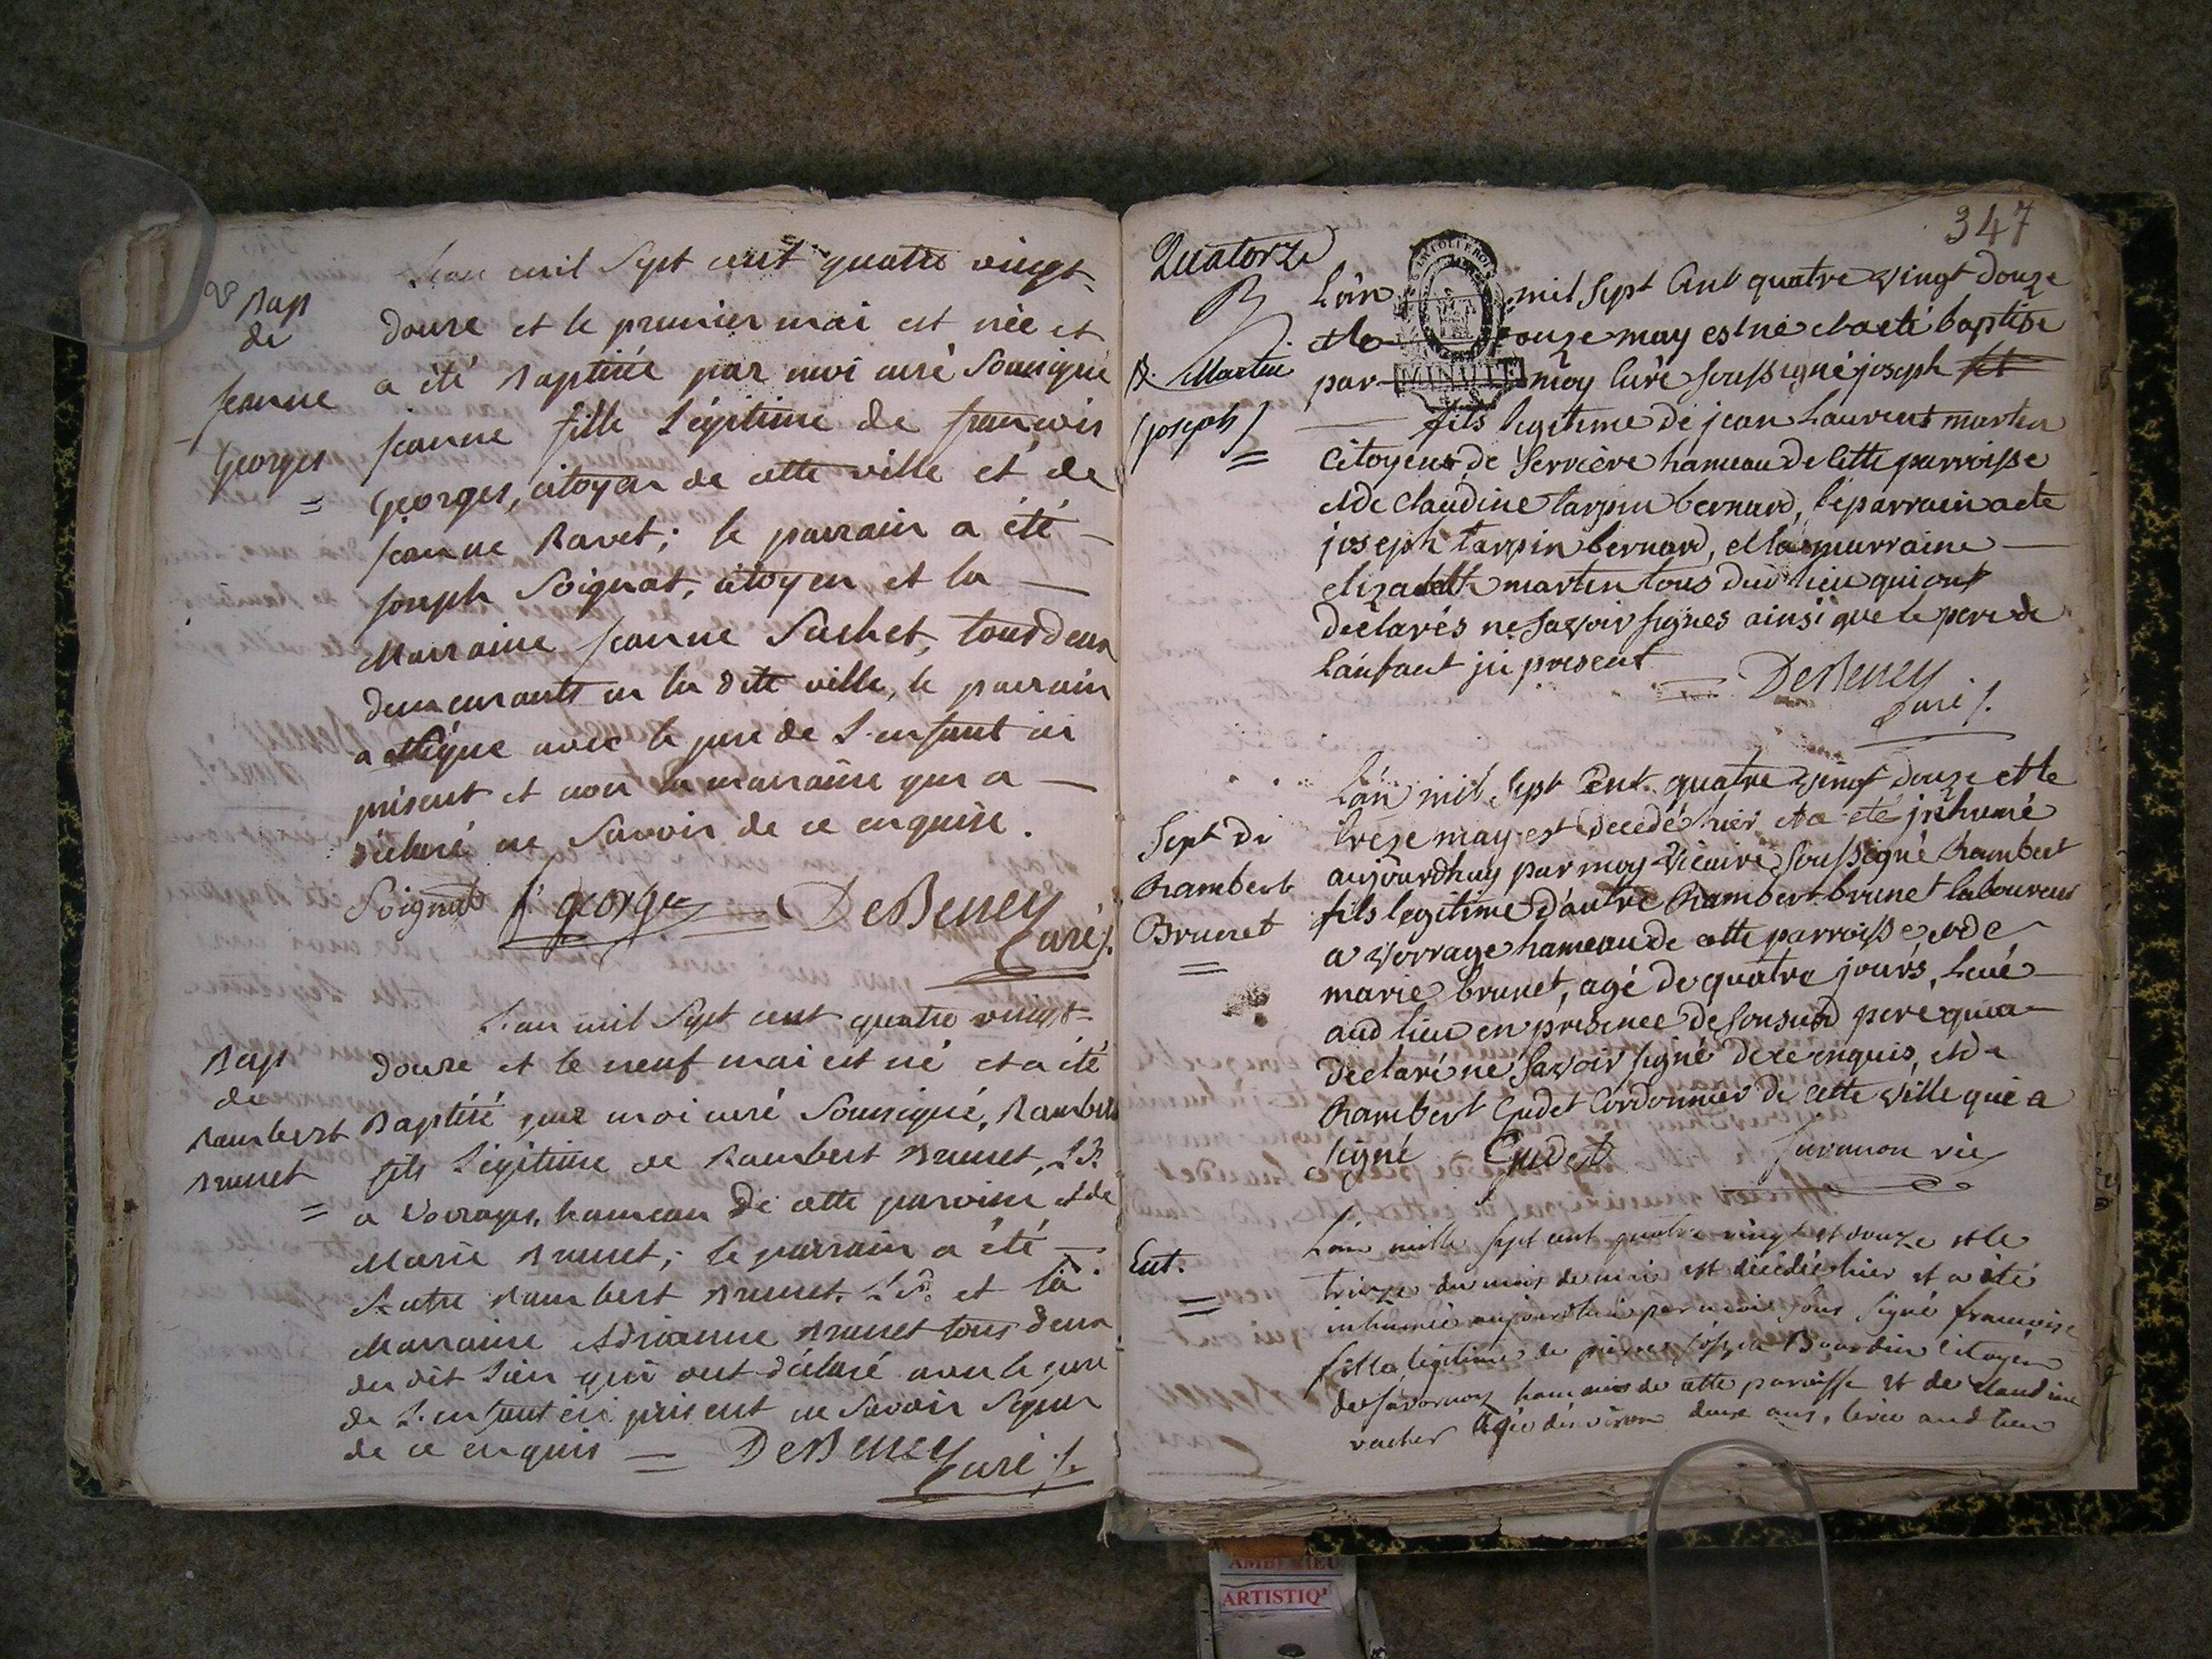 Bap
de
jeanne
Georges
=
L'an mil Sept cent quatre vingt=
douze et le premier mai est née et
a été Baptisée par moi curé Soussigné
jeanne fille Légitime de françois
Georges, citoyen de cette ville et de
jeanne Ravet; le parrain a été
joseph Soignat, citoyen et la
Marraine jeanne Suchet, tous deux
demeurants en la dite ville, le parrain
a signé avec le pere de L'enfant ici
présent et non la marraine qui a
déclaré ne Savoir de ce enquise.
Soignat f george DeBeney
Curé
Bap
de
Rambert
Brunet
=
L'an mil Sept cent quatre vingt=
douze et le neuf mai est né et a été
Baptisé par moi curé Soussigné, Rambert
fils Légitime de Rambert Brunet, Lr.
a Vorages, hameau de cette paroisse et de
Marie Brunet; le parrain a été
Autre Rambert Brunet Lr. et la
Marraine Adrianne Brunet tous deux
du dit Lieu qui ont déclaré avec le pere
de L'enfant ici présent ne Savoir Signer
de ce enquis = DeBeney
Curé
347
Quatorze
B. Martin
joseph
=
L'an mil Sept Cent quatre vingt douze
et le onze may est né et a eté baptisé
par moy Curé soussigné joseph
fils legitime de jean Laurent martin
Citoyen de Serriere hameau de Cette parroisse
et de Claudine tarpin bernard, le parrain a ete
joseph tarpin bernard, et la marraine
elizabeth martin tous dud lieu qui ont
declarés ne Savoir signés ainsi que le pere de
L'anfant ici present = DeBeney
Curé
MINUTE
Sept de
Rambert
Brunet
=
L'an mil Sept Cent quatre vingt douze et le
treze may est decedé hier et a eté inhumé
aujourdhuy par moy Vicaire soussigné Rambert
fils legitime d'autre Rambert brunet laboureur
a Vorrage hameau de cette parroisse, et de
marie brunet, agé de quatre jours, Levé
aud lieu en presence de son susd pere qui a
declaré ne Savoir signé de ce enquis, et de
Rambert Gudet Cordonnier de Cette Ville qui a
signé Gudet vic
Ent.
=
L'an mille sept cent quatre vingt et douze et le
treize du mois de mai est décédée hier et a été
inhumée aujourdhui par moi sous signé francoise
fille légitime de pierre joseph Bourdin citoyen
de hameau de cette paroisse et de claudine
vacher agée d'environ deux ans, levée aud lieu
AMBERIEU
ARTISTIQ'